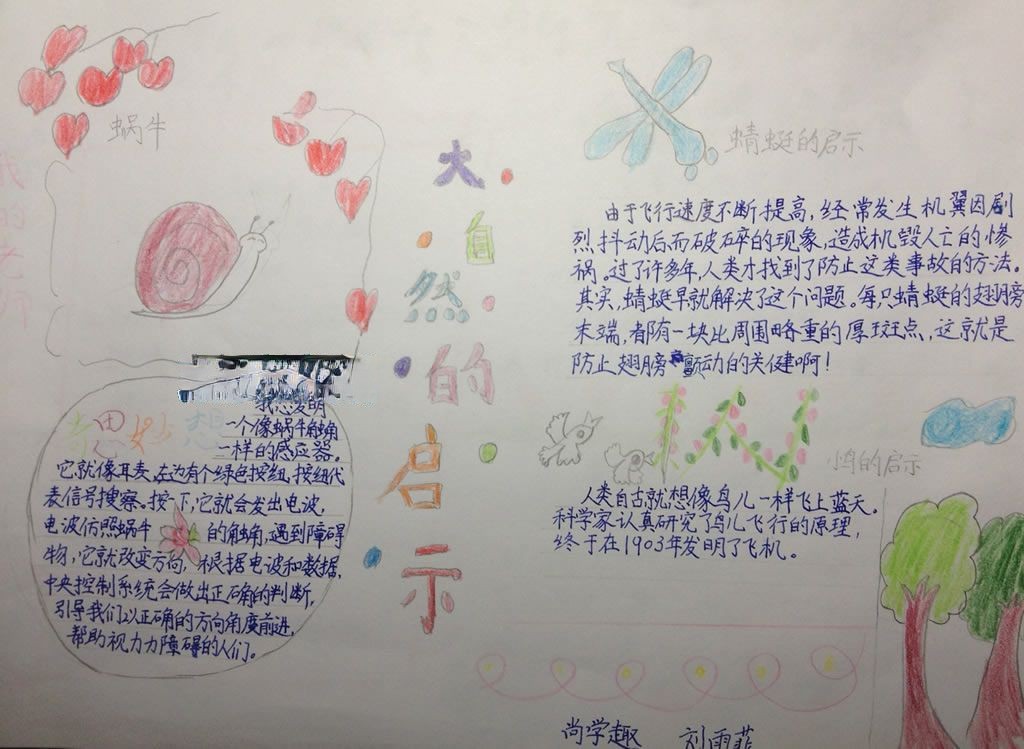 蜗牛
奇思妙想
我想发明
一个像蜗牛触角
一样的感应器。
它就像耳麦,左边有个绿色按纽,按纽代
表信号搜察。按一下,它就会发出电波,
电波仿照蜗牛的角触角,遇到障碍
物,它就改变方向,根据电波和数据,
中央控制系统会做出正确的判断,
引导我们以正确的方向角度前进,
帮助视力力障碍的人们。
大自然的启示
蜻蜓的启示
由于飞行速度不断提高,经常发生机翼因剧
烈抖动后而破碎的现象,造成机毁人亡的惨
祸。过了许多年,人类才找到了防止这类事故的方法。
其实,蜻蜓早就解决了这个问题。每只蜻蜓的翅膀
末端,都有一块比周围略重的厚斑点,这就是
防止翅膀颤动的关健啊!
小鸟的启示
人类自古就想像鸟儿一样飞上蓝天。
科学家认真研究了鸟儿飞行的原理,
终于在1903年发明了飞机。
尚学趣 刘雨菲